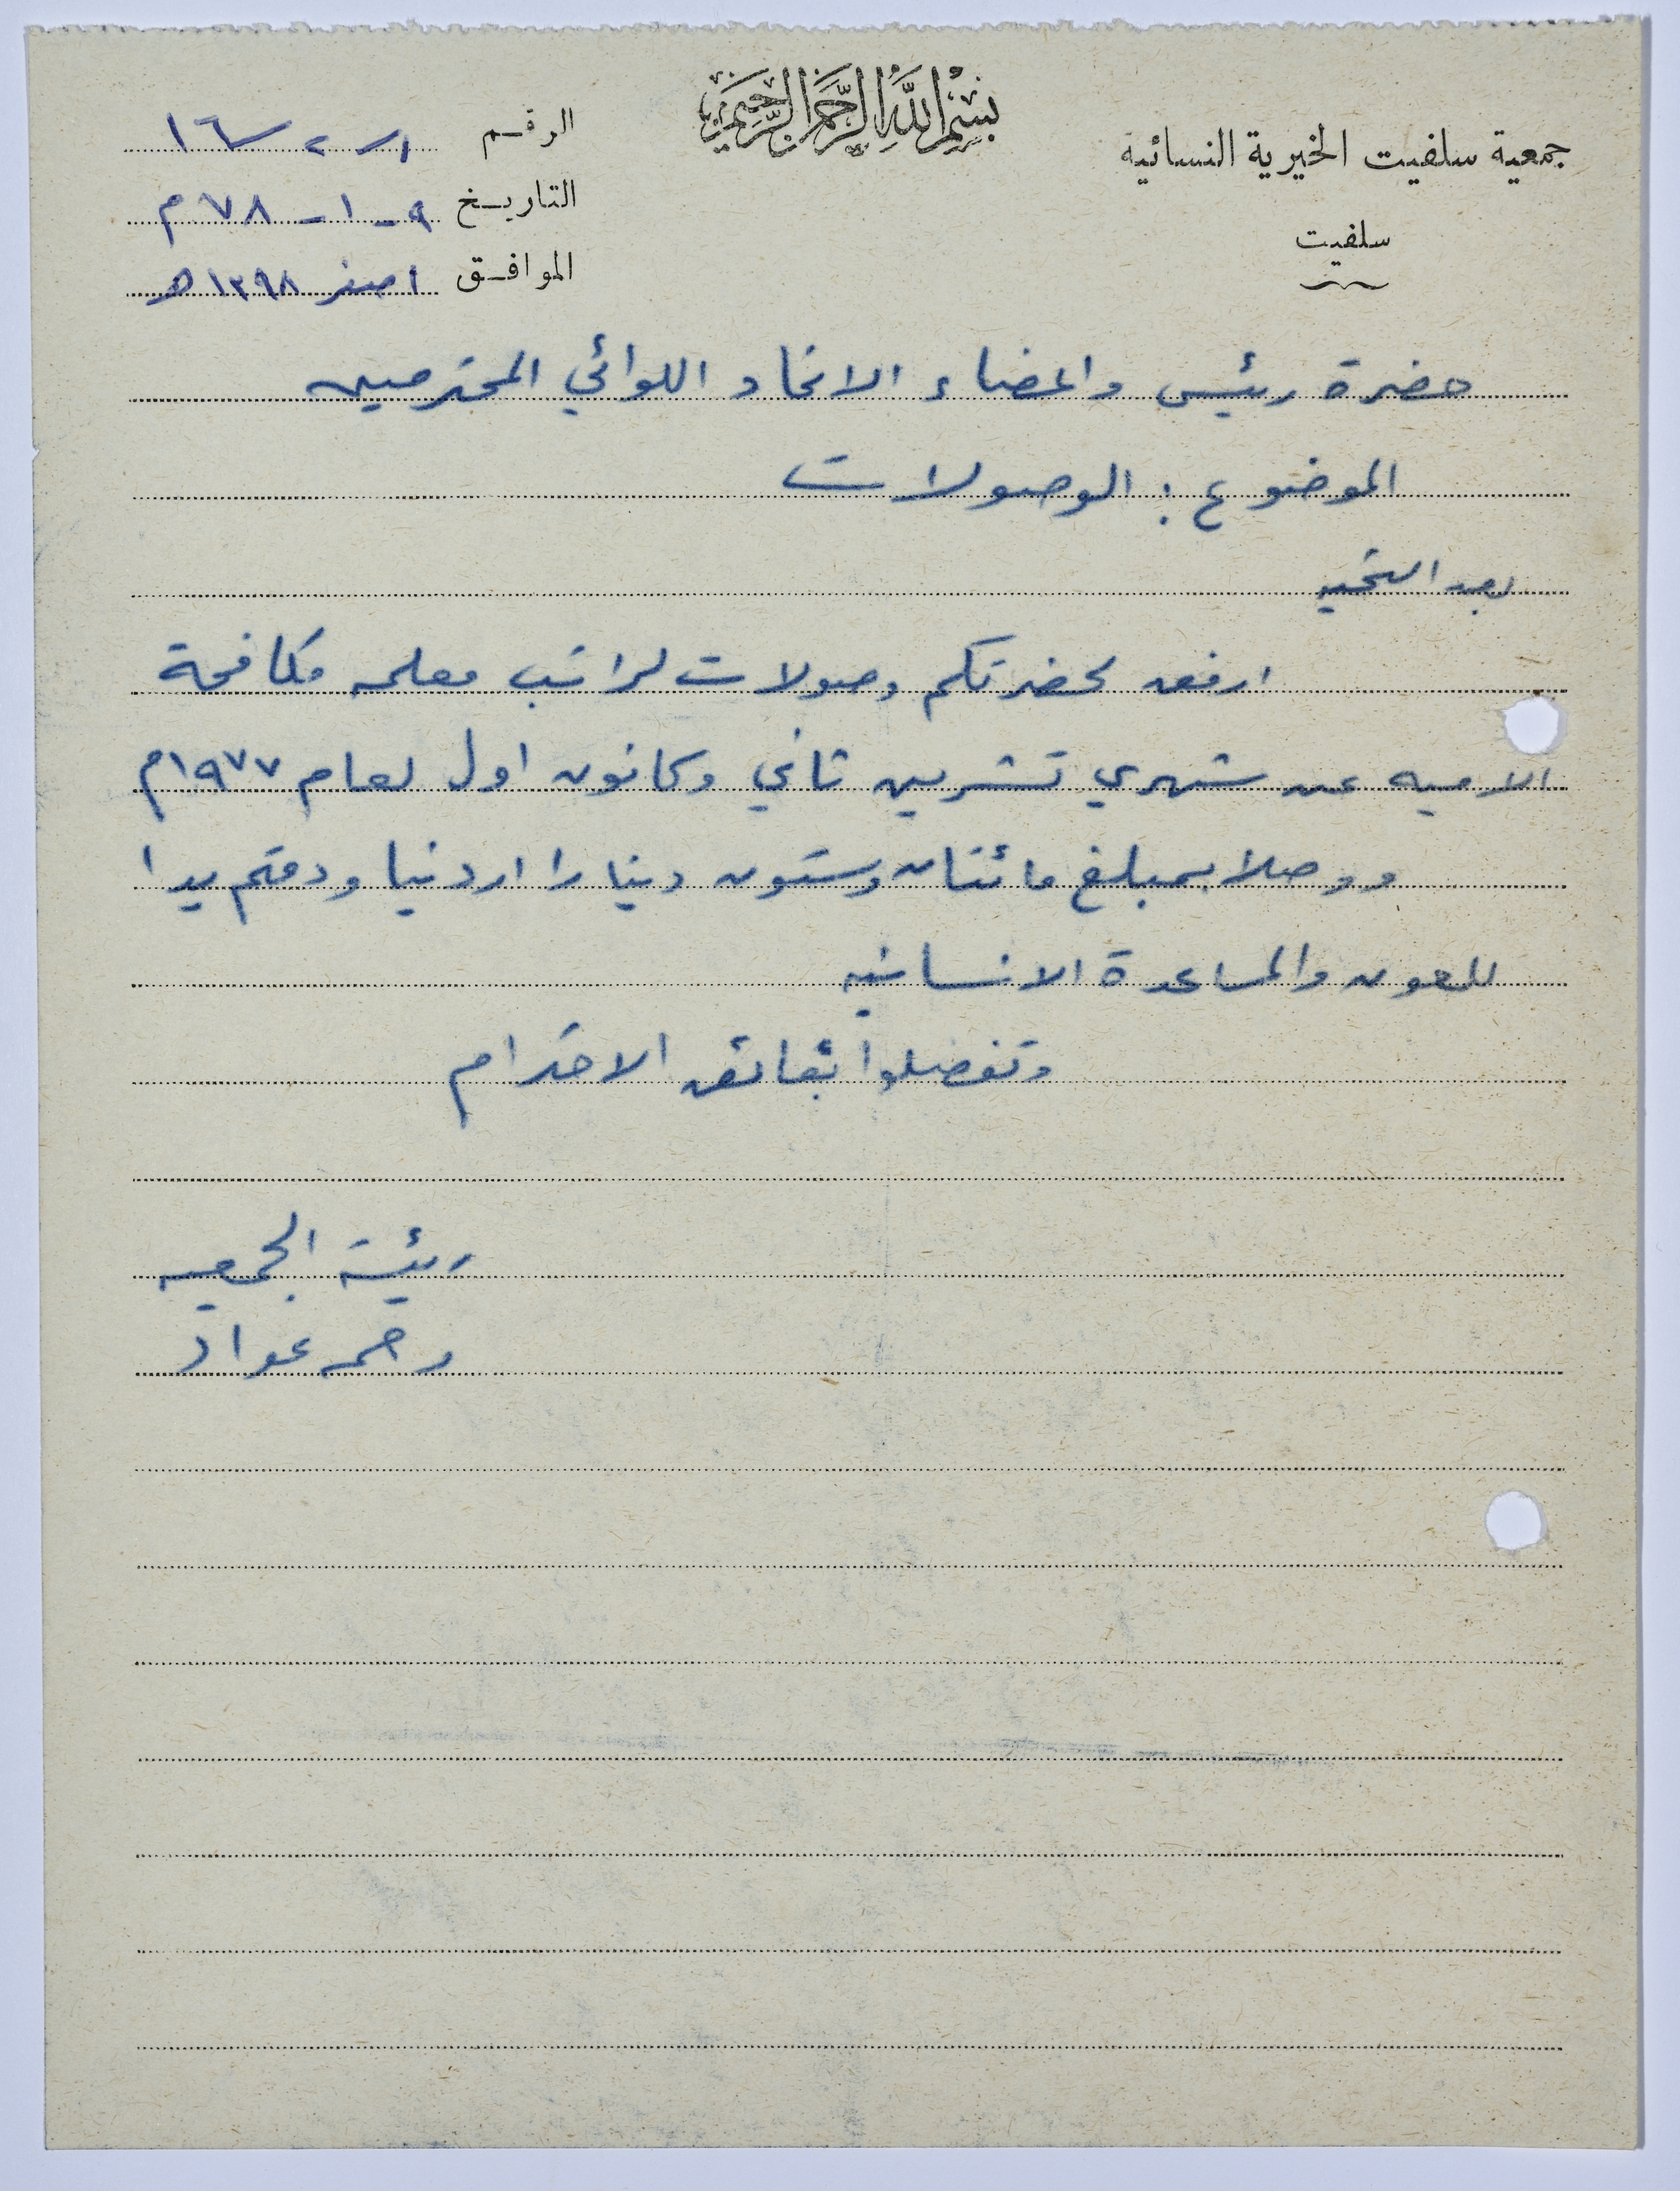 بسم الله الرحمن الرحيم
جمعية سلفيت الخيرية النسائية
سلفيت
الرقم ١/٢/١٦
التاريخ ٩-١-٧٨م
الموافق ١ صفر ١٣٩٨هـ
حضرة رئيس واعضاء الاتحاد اللوائي المحترمين
الموضوع : الوصولات
بعد التحيه
ارفق لحضرتكم وصولات لراتب معلمه مكافحة
الاميه عن شهري تشرين ثاني وكانون اول لعام ١٩٧٧م
ووصلا بمبلغ مائتان وستون دينارا اردنيا ودمتم يدا
للعون والمساعدة الانسانيه
وتفضلوا بفائق الاحترام
رئيسة الجمعيه
رحمه عواد